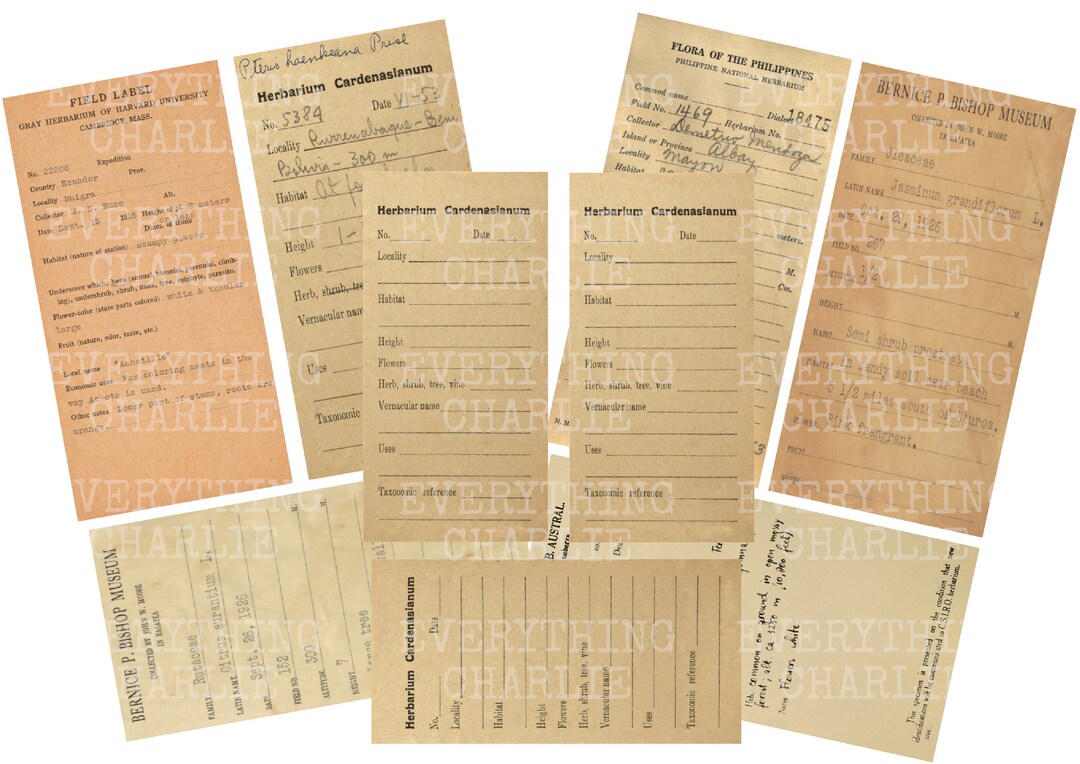 FIELD LABEL
GRAY HERBARIUM OF HARVARD UNIVERSITY
CAMBRIDGE, MASS.
Expedition
No. 22206
Country Ecuador Prov.
Locality Huigra Alt.
Collector J. N. Rose
Date Sept. 15 1918 Height of pl. 2 meters or less
Diam. of trunk
Habitat (nature of station) swampy places
Underscore which: herb (annual, biennial, perennial, climb-
ing), undershrub, shrub, liana, tree, epiphyte, parasite.
Flower-color (state parts colored) white & tubular
large
Fruit (nature, odor, taste, etc.)
Local name "Achotillo"
Economic uses For coloring meats in the
way Achote is used.
Other notes Lower part of stems, roots are
orange.
Pteris haenkeana Presl
Herbarium Cardenasianum
No. 5384 Date VI-53
Locality Rurrenabaque - Beni
Bolivia - 300 m
Habitat At
Height 1-
Flowers
Herb, shrub, tree
Vernacular name
Uses
Taxonomic
FLORA OF THE PHILIPPINES
PHILIPPINE NATIONAL HERBARIUM
Common name
Field No. 1469 Herbarium No. 18475
Collector Demetrio Mendoza
Island or Province Albay
Locality Mayon
Habitat
meters.
M.
Cm.
BERNICE P. BISHOP MUSEUM
COLLECTED BY JOHN W. MOORE
IN RAIATEA
FAMILY Oleaceae
LATIN NAME Jasminum grandiflorum L.
DATE 20, 1926
FIELD NO. 267
1/2
HEIGHT M.
HABIT Semi shrub prostrate
in sandy soil near beach
5 1/2 miles south of
Pink frangrant.
FRUIT
Herbarium Cardenasianum
No. Date
Locality
Habitat
Height
Flowers
Herb, shrub, tree, vine
Vernacular name
Uses
Taxonomic reference
Herbarium Cardenasianum
No. Date
Locality
Habitat
Height
Flowers
Herb, shrub, tree, vine
Vernacular name
Uses
Taxonomic reference
BERNICE P. BISHOP MUSEUM
COLLECTED BY JOHN W. MOORE
IN RAIATEA
FAMILY Rutaceae
LATIN NAME Citrus aurantium L.
DATE Sept. 26, 1926
FIELD NO. 152
ALTITUDE 300 M.
HEIGHT 7 M.
tree
B. AUSTRAL.
no.
Herbarium Cardenasianum
No. Date
Locality
Habitat
Height
Flowers
Herb, shrub, tree, vine
Vernacular name
Uses
Taxonomic reference
Hab. common on ground in open mossy
forest; alt. ca 1230 m (10,200 feet)
Notes Flowers white
This specimen is presented on the condition that new
identifications will be communicated to C.S.I.R.O. herbarium.
EVERYTHING
CHARLIE